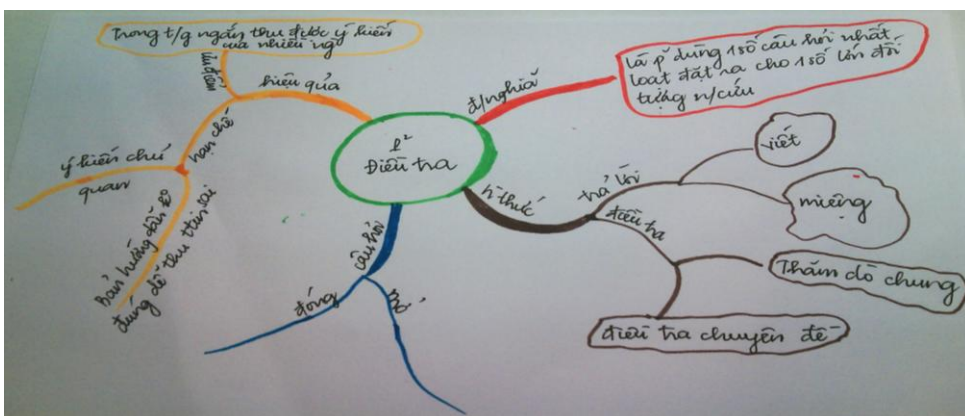 Trong t/g ngắn thu được ý kiến
của nhiều ng`
ưu điểm
hiệu qủa
hạn chế
ý kiến chủ
quan
bản hướng dẫn ko
đúng dễ thu t/tin sai
p²
Điều tra
đ/nghĩa
là p² dùng 1 số câu hỏi nhất
loạt đặt ra cho 1 số lớn đối
tượng n/cứu
h`thức
trả lời
viết
miệng
điều tra
Thăm dò chung
điều tra chuyên đề
câu hỏi
đóng
mở